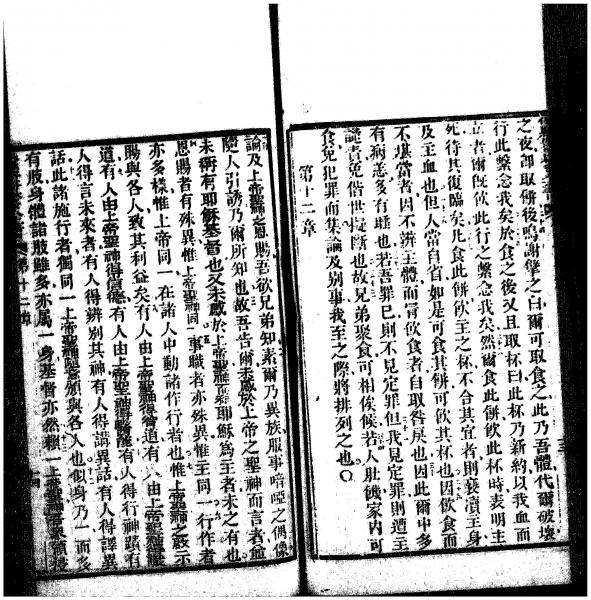 之夜卽取餅後嗚謝肇之曰爾可取食之此乃吾體代爾破壞
行此繫念我矣於食之後又且取杯曰此杯乃新約以我血而
立者爾旣飲此行之繫念我矣然爾食此餅飲此杯時表明主
死待其復臨矣凡食此餅飲主之杯不合其宜者則褻瀆主身
及主血也但人當自省如是可食其餅可飲其杯也因飲食而
不堪當者因不辨主體而冒飲食者自取咎戾也因此爾中多
有病恙多有睡也若吾罪己則不見定罪但我見定罪則遭主
譴責免偕世擬斷也故兄弟聚食可相俟候若人肚餓家內可
食免犯罪而集論及別事我至之際將排列之也〇
第十二章
論及上帝聖神之恩賜吾欲兄弟知素爾乃異族服事喑啞之偶像
隨人引誘乃爾所知也故吾告爾未感於上帝之聖神而言者
未稱有耶穌基督也又未感於上帝聖神耶穌爲主者未之有也
恩賜者有殊異惟上帝聖神同一事職者亦殊異惟主同一行作者
亦多樣惟上帝同一在諸人中動諸作行者也惟上帝聖神之啟示
賜與各人致其利益矣有人由上帝聖神得智道有人由上帝聖神
道有人由上帝聖神得信德有人由上帝聖神得醫有人得行神蹟有
人得言未來者有人得辨別其神有人得講異話有人得譯異
話此諸施行者獨同一上帝聖神願與各人也似身乃一而多
有肢身體諸肢雖多亦爲一身基督亦然賴一上帝聖神
第十二章